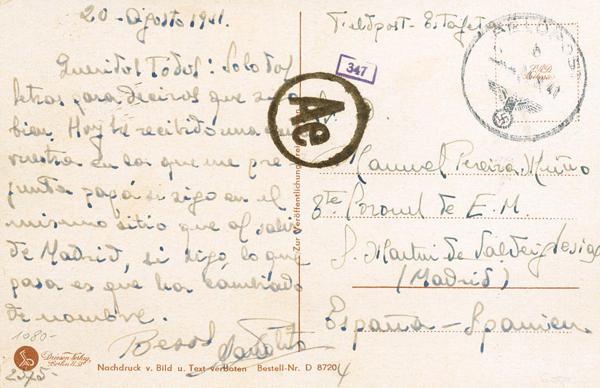 20 - Agosto 1941.
Queridos Todos: Solo dos
letras para deciros que sigo
bien. Hoy he recibido una
vuestra en la que me pre-
gunta papá si sigo en el
mismo sitio que al salir
de Madrid, si sigo, lo que
pasa es que ha cambiado
de nombre.
Besos
Manolito
1080-
2575-
Driesen Verlag,
Berlin
Nachdruck v. Bild u. Text verboten Bestell-Nr. D 8720
Zur Veröffentlichung
Ae
347
Feldpost - Estafeta
FELDPOST
Manuel Pereira Muiño
Coronel de E. M.
S. Martín de Valdeiglesias
(Madrid)
España - Spanien